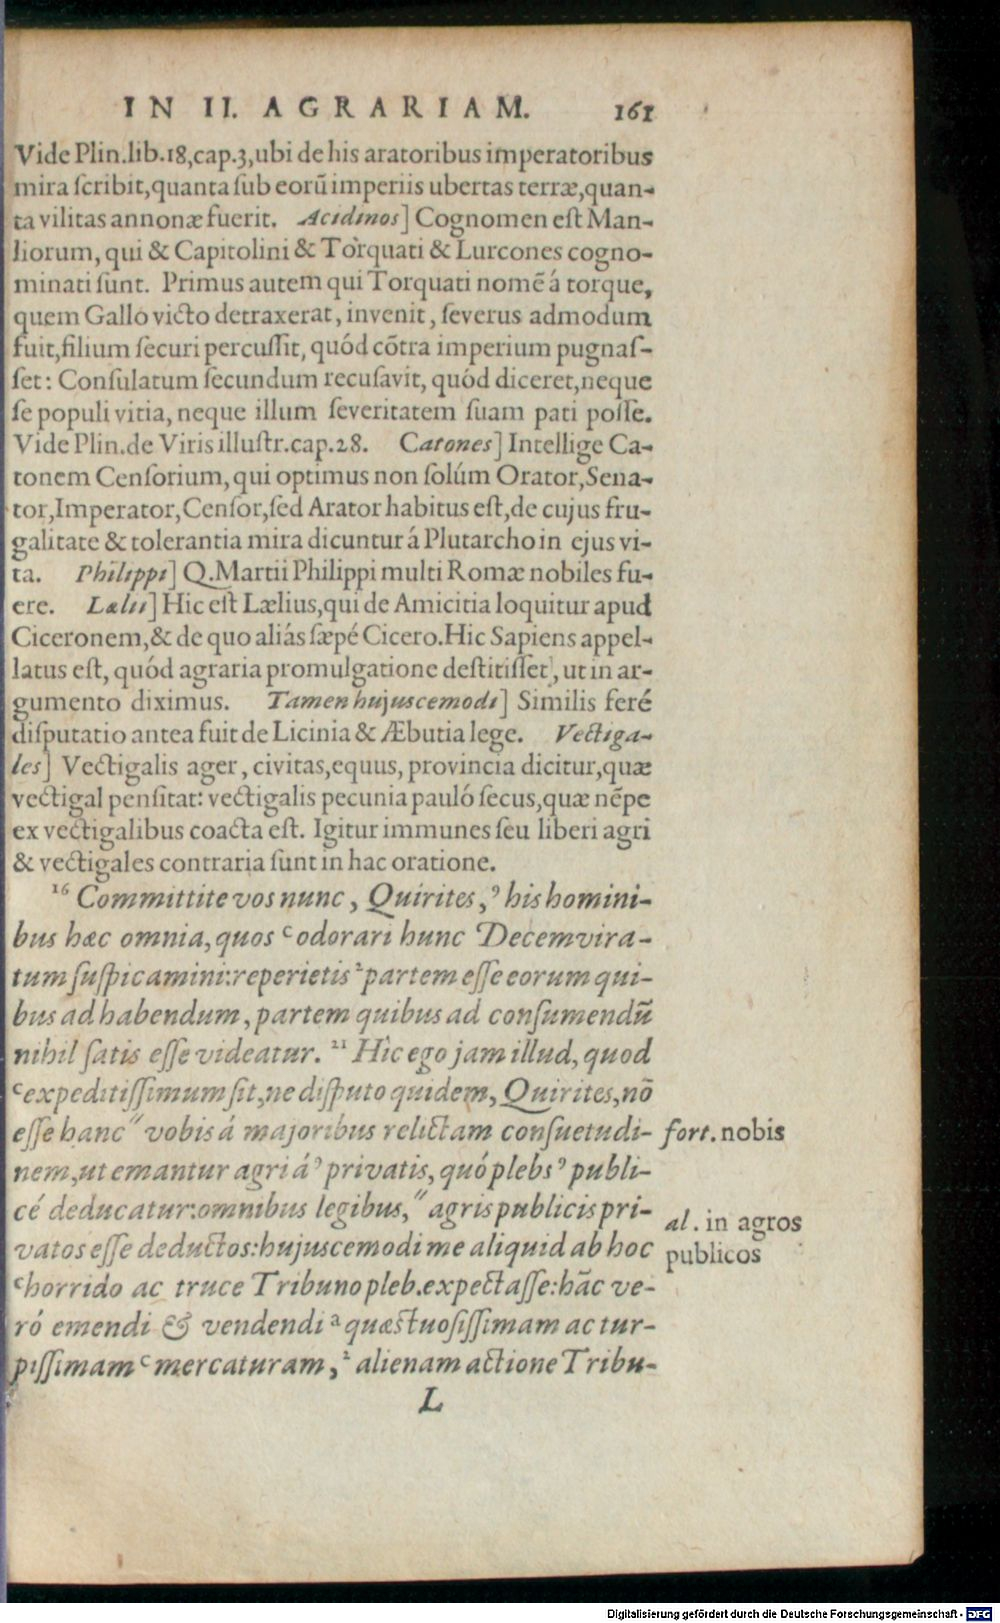 IN II. AGRARIAM. 161
Vide Plin.lib.18,cap.3,ubi de his aratoribus imperatoribus
mira ſcribit,quanta ſub eorū imperiis ubertas terræ,quan-
ta vilitas annonæ fuerit. Acidinos] Cognomen eſt Man-
liorum, qui & Capitolini & Torquati & Lurcones cogno-
minati ſunt. Primus autem qui Torquati nomē á torque,
quem Gallo victo detraxerat, invenit, ſeverus admodum
fuit,filium ſecuri percuſſit, quód cōtra imperium pugnaſ-
ſet: Conſulatum ſecundum recuſavit, quód diceret,neque
ſe populi vitia, neque illum ſeveritatem ſuam pati poſſe.
Vide Plin.de Viris illuſtr.cap.28. Catones] Intellige Ca-
tonem Cenſorium, qui optimus non ſolúm Orator,Sena-
tor,Imperator,Cenſor,ſed Arator habitus eſt,de cujus fru-
galitate & tolerantia mira dicuntur á Plutarcho in ejus vi-
ta. Philippi] Q.Martii Philippi multi Romæ nobiles fu-
ere. Lælii] Hic eſt Lælius,qui de Amicitia loquitur apud
Ciceronem,& de quo aliás ſæpé Cicero.Hic Sapiens appel-
latus eſt, quód agraria promulgatione deſtitiſſet, ut in ar-
gumento diximus. Tamen hujuscemodi] Similis feré
diſputatio antea fuit de Licinia & Æbutia lege. Vectiga-
les] Vectigalis ager, civitas,equus, provincia dicitur,quæ
vectigal penſitat: vectigalis pecunia pauló ſecus,quæ nēpe
ex vectigalibus coacta eſt. Igitur immunes ſeu liberi agri
& vectigales contraria ſunt in hac oratione.
¹⁶ Committite vos nunc, Quirites,⁹ his homini-
bus hæc omnia,quos ᶜodorari hunc Decemvira-
tum ſuſpicamini:reperietis ²partem eſſe eorum qui-
bus ad habendum, partem quibus ad conſumendū
nihil ſatis eſſe videatur. ²¹ Hîc ego jam illud, quod
ᶜexpeditiſſimum ſit,ne diſputo quidem, Quirites,nō
eſſe hanc" vobis á majoribus relictam conſuetudi-
fort. nobis
nem,ut emantur agri á⁹ privatis, quó plebs⁹ publi-
cé deducatur:omnibus legibus," agris publicis pri-
al. in agros
vatos eſſe deductos:hujuscemodi me aliquid ab hoc
publicos
ᶜhorrido ac truce Tribuno pleb.expectaſſe:hāc ve-
ró emendi & vendendi ᵃquæſtuoſiſſimam ac tur-
piſſimam ᶜmercaturam, ² alienam actione Tribu-
L
Digitalisierung gefördert durch die Deutsche Forschungsgemeinschaft - DFG